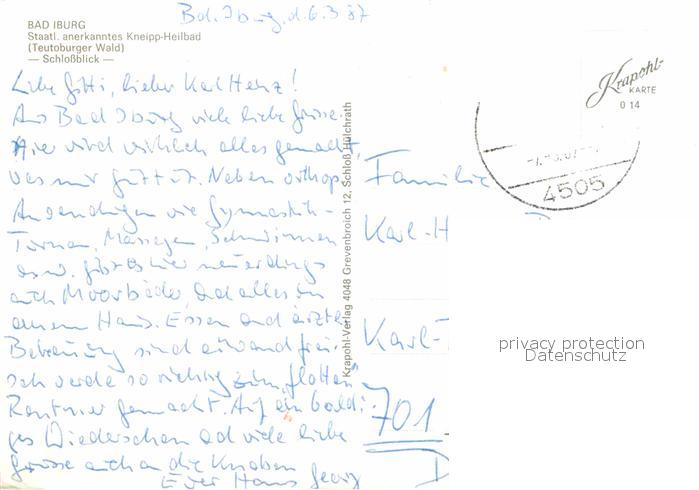 Bad Iburg, d. 6.3.87
BAD IBURG
Staatl. anerkanntes Kneipp-Heilbad
(Teutoburger Wald)
— Schloßblick —
Liebe Gitti, lieber Karl Heinz!
Aus Bad Iburg viele liebe Grüsse.
Hier wird wirklich alles gemacht,
was mir gut tut. Neben orthop.
Anwendungen wie Gymnastik-
Turnen, Massagen, Schwimmen
usw. gibt es hier neuerdings
auch Moorbäder, und alles in
einem Haus. Essen und ärztl.
Betreuung sind einwandfrei.
Ich werde so richtig zum "flotten"
Rentner gemacht. Auf ein baldi-
ges Wiedersehen und viele liebe
Grüsse auch an die Knaben
Euer Hans Georg
Krapohl-Verlag 4048 Grevenbroich 12, Schloß Hülchrath
Krapohl-
KARTE
0 14
4505
Familie
Karl-H
Karl-
701
privacy protection
Datenschutz